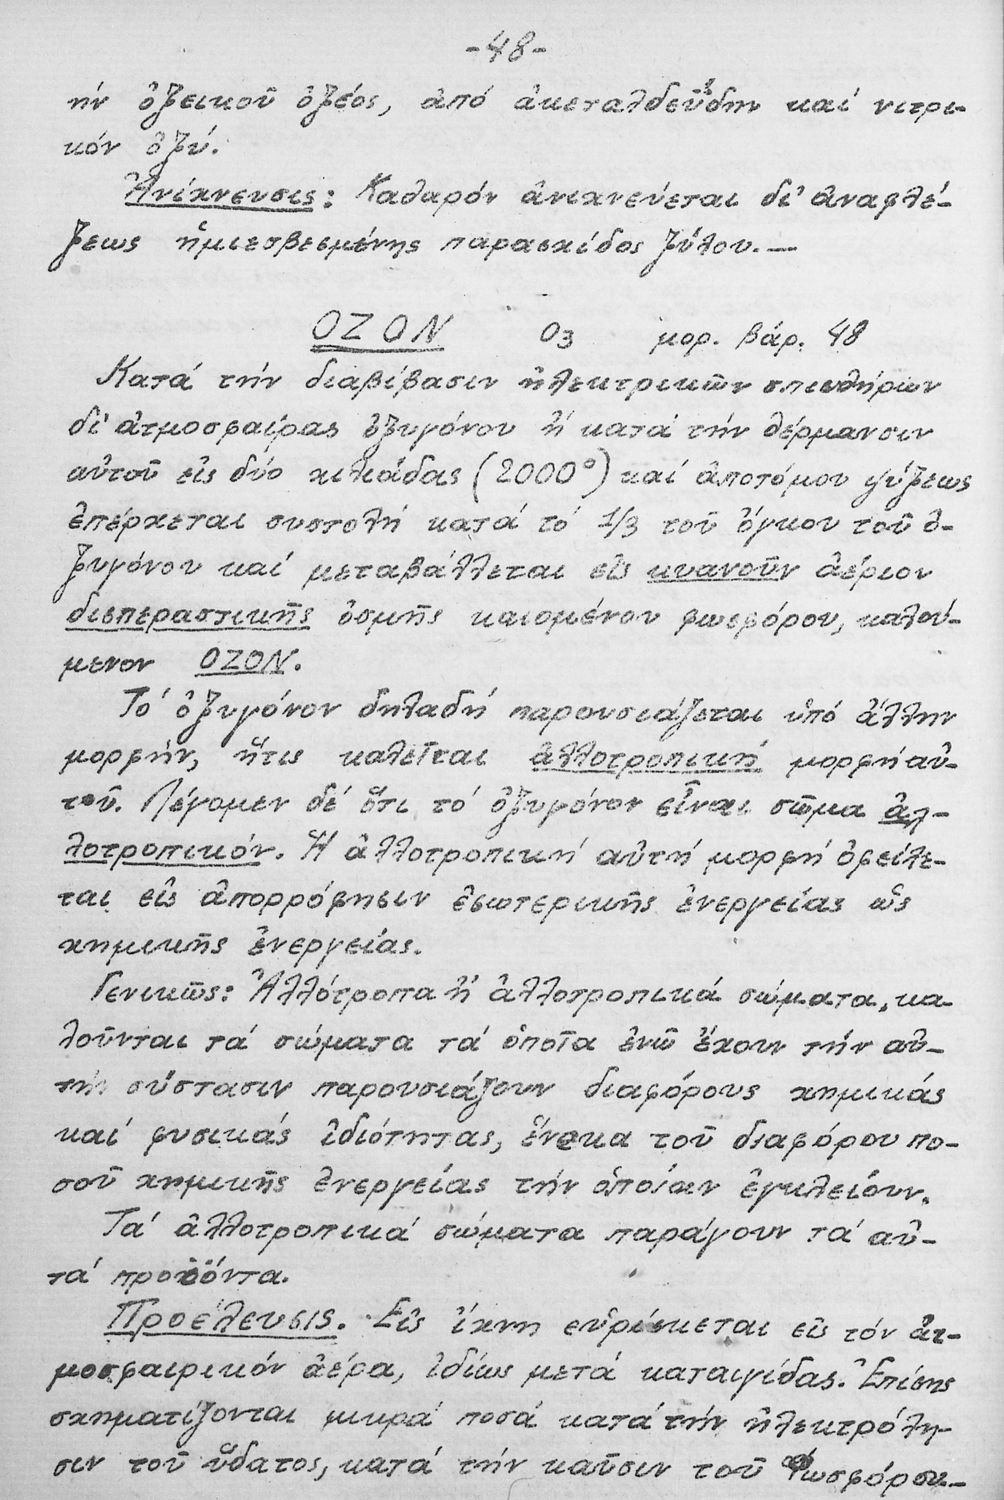 -48-
ήν ὀξεικοῦ ὀξέος, ἀπό ἀκεταλδεΰδην καί νιτρι-
κόν ὀξύ.
Ἀνίχνευσις: Καθαρόν ἀνιχνεύεται δι' ἀναφλέ-
ξεως ἡμιεσβεσμένης παρασχίδος ξύλου.—
ΟΖΟΝ O3 μορ. βάρ. 48
Κατά τήν διαβίβασιν ἠλεκτρικῶν σπινθήρων
δι' ἀτμοσφαίρας ὀξυγόνου ἤ κατά τήν θέρμανσιν
αὐτοῦ εἰς δύο χιλιάδας (2000°) καί ἀποτόμου ψύξεως
ἐπέρχεται συστολή κατά τό 1/3 τοῦ ὄγκου τοῦ ὀ-
ξυγόνου καί μεταβάλλεται εἰς κυανοῦν ἀέριον
διεπεραστικῆς ὀσμῆς καιομένου φωσφόρου, καλού-
μενον ΟΖΟΝ.
Τό ὀξυγόνον δηλαδή παρουσιάζεται ὑπό ἄλλην
μορφήν, ἥτις καλεῖται ἀλλοτροπική μορφή αὐ-
τοῦ. Λέγομεν δέ ὅτι τό ὀξυγόνον εἶναι σῶμα ἀλ-
λοτροπικόν. Ἡ ἀλλοτροπική αὐτή μορφή ὀφείλε-
ται εἰς ἀπορρόφησιν ἐσωτερικῆς ἐνεργείας ὡς
χημικῆς ἐνεργείας.
Γενικῶς: Ἀλλότροπα ἤ ἀλλοτροπικά σώματα, κα-
λοῦνται τά σώματα τά ὁποῖα ἐνῶ ἔχουν τήν αὐ-
τήν σύστασιν παρουσιάζουν διαφόρους χημικάς
καί φυσικάς ἰδιότητας, ἕνεκα τοῦ διαφόρου πο-
σοῦ χημικῆς ἐνεργείας τήν ὁποίαν ἐγκλείουν.
Τά ἀλλοτροπικά σώματα παράγουν τά αὐ-
τά προϊόντα.
Προέλευσις. Εἰς ἴχνη εὑρίσκεται εἰς τόν ἀτ-
μοσφαιρικόν ἀέρα, ἰδίως μετά καταιγίδας. Ἐπίσης
σχηματίζονται μικρά ποσά κατά τήν ἠλεκτρόλη-
σιν τοῦ ὕδατος, κατά τήν καῦσιν τοῦ φωσφόρου-